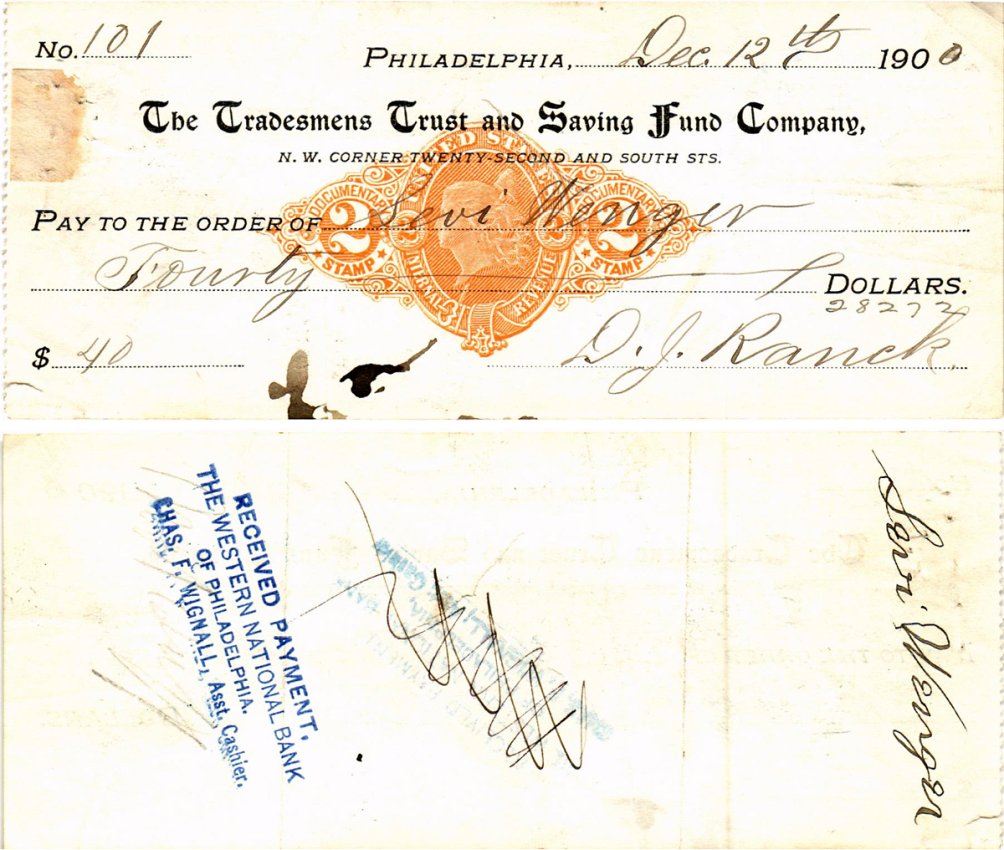 No. 101
PHILADELPHIA, Dec. 12th 1900
The Tradesmens Trust and Saving Fund Company,
N. W. CORNER TWENTY-SECOND AND SOUTH STS.
UNITED STATES
DOCUMENTARY DOCUMENTARY
2 2
STAMP STAMP
INTERNAL REVENUE
PAY TO THE ORDER OF Levi Wenger
Fourty DOLLARS.
28272
$ 40 D. J. Ranck
RECEIVED PAYMENT.
THE WESTERN NATIONAL BANK
OF PHILADELPHIA.
CHAS. F. WIGNALL, Asst. Cashier.
Levi Wenger